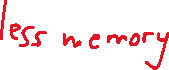 less memory